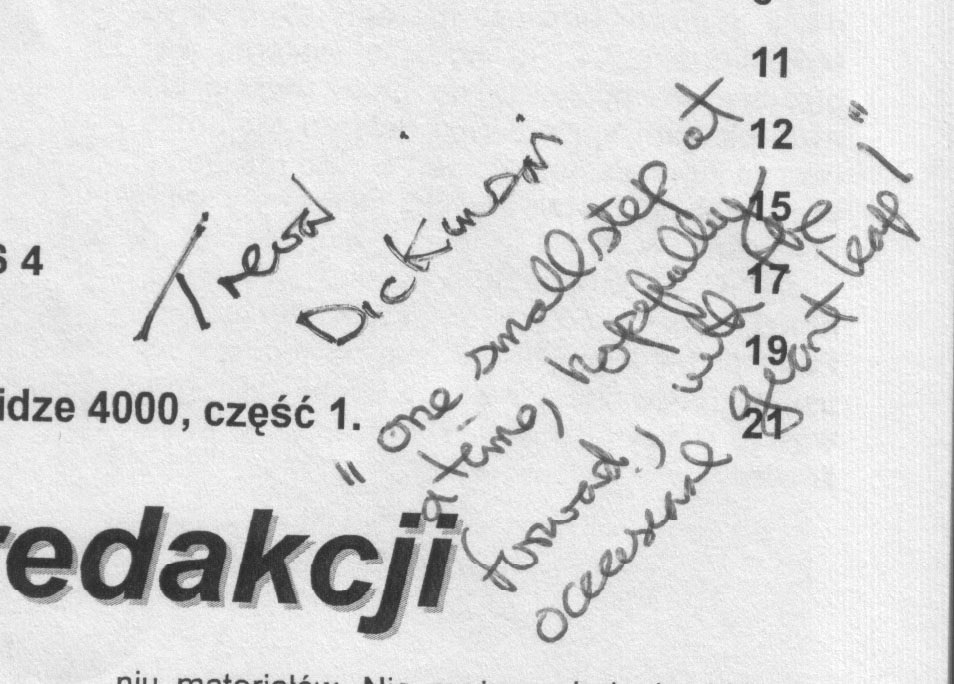 11
12
15
17
19
21
S 4
idze 4000, część 1.
redakcji
Trevor
Dickinson
" one small step at
a time, hopefully
(forward!) with the
occasional giant leap! "